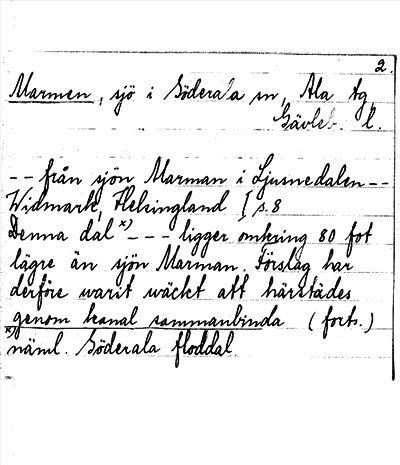 2.
Marmen, sjö i Söderala sn, Ala tg
Gävleb. l.
-- från sjön Marman i Ljusnedalen --
Widmark, Helsingland I s. 8
Denna dal x) --- ligger omkring 80 fot
lägre än sjön Marman. Förslag har
derföre warit wäckt att härstädes
genom kanal sammanbinda (forts.)
x) näml. Söderala floddal.